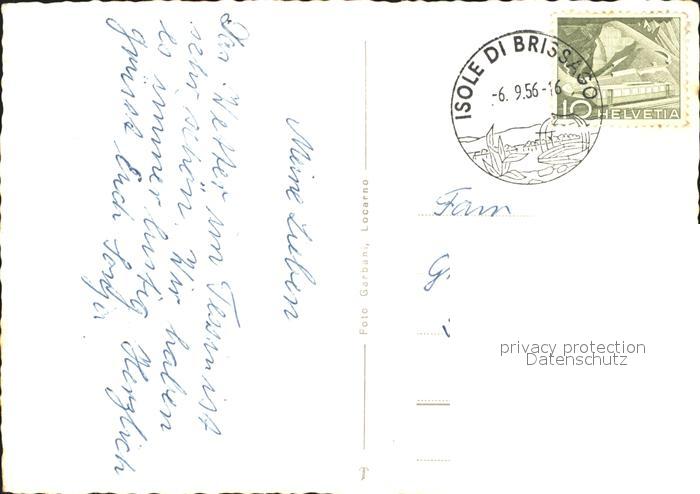 Meine Lieben
Das Wetter im Tessin ist
sehr schön. Wir haben
es immer lustig. Herzlich
grüsst Euch
Foto Garbani, Locarno
ISOLE DI BRISSAGO
-6. 9.56-16
10 HELVETIA
Fam
G.
privacy protection
Datenschutz